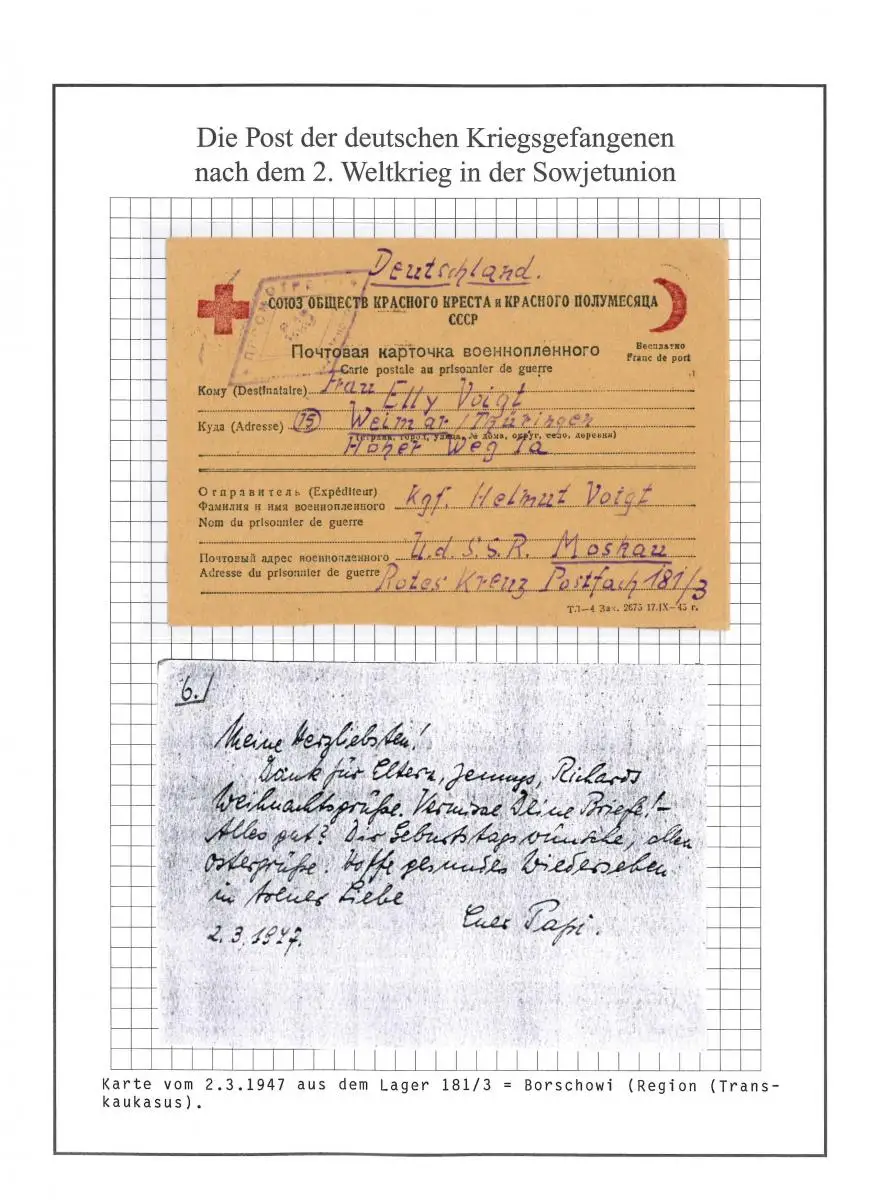 Die Post der deutschen Kriegsgefangenen
nach dem 2. Weltkrieg in der Sowjetunion
Deutschland.
СОЮЗ ОБЩЕСТВ КРАСНОГО КРЕСТА и КРАСНОГО ПОЛУМЕСЯЦА
СССР
Почтовая карточка военнопленного
Carte postale au prisonnier de guerre
Бесплатно
Franc de port
Кому (Destinataire) Frau Elly Voigt
Куда (Adresse) (15) Weimar / Thüringen
(страна, город, улица, № дома, округ, село, деревня)
Hoher Weg 1a
Отправитель (Expéditeur)
Фамилия и имя военнопленного Kgf. Helmut Voigt
Nom du prisonnier de guerre
Почтовый адрес военнопленного U.d.S.S.R. Moskau
Adresse du prisonnier de guerre Rotes Kreuz Postfach 181/3
ТЛ—4 Зак. 2675 17.IX—45 г.
6.)
Meine Herzliebsten!
Dank für Eltern, Jennys, Richards
Weihnachtsgrüße. Vermisse Deine Briefe! –
Alles gut? Dir Geburtstagswünsche, allen
Ostergrüße. Hoffe gesundes Wiedersehen
in treuer Liebe
Euer Papi.
2.3.1947.
Karte vom 2.3.1947 aus dem Lager 181/3 = Borschowi (Region (Trans-
kaukasus).